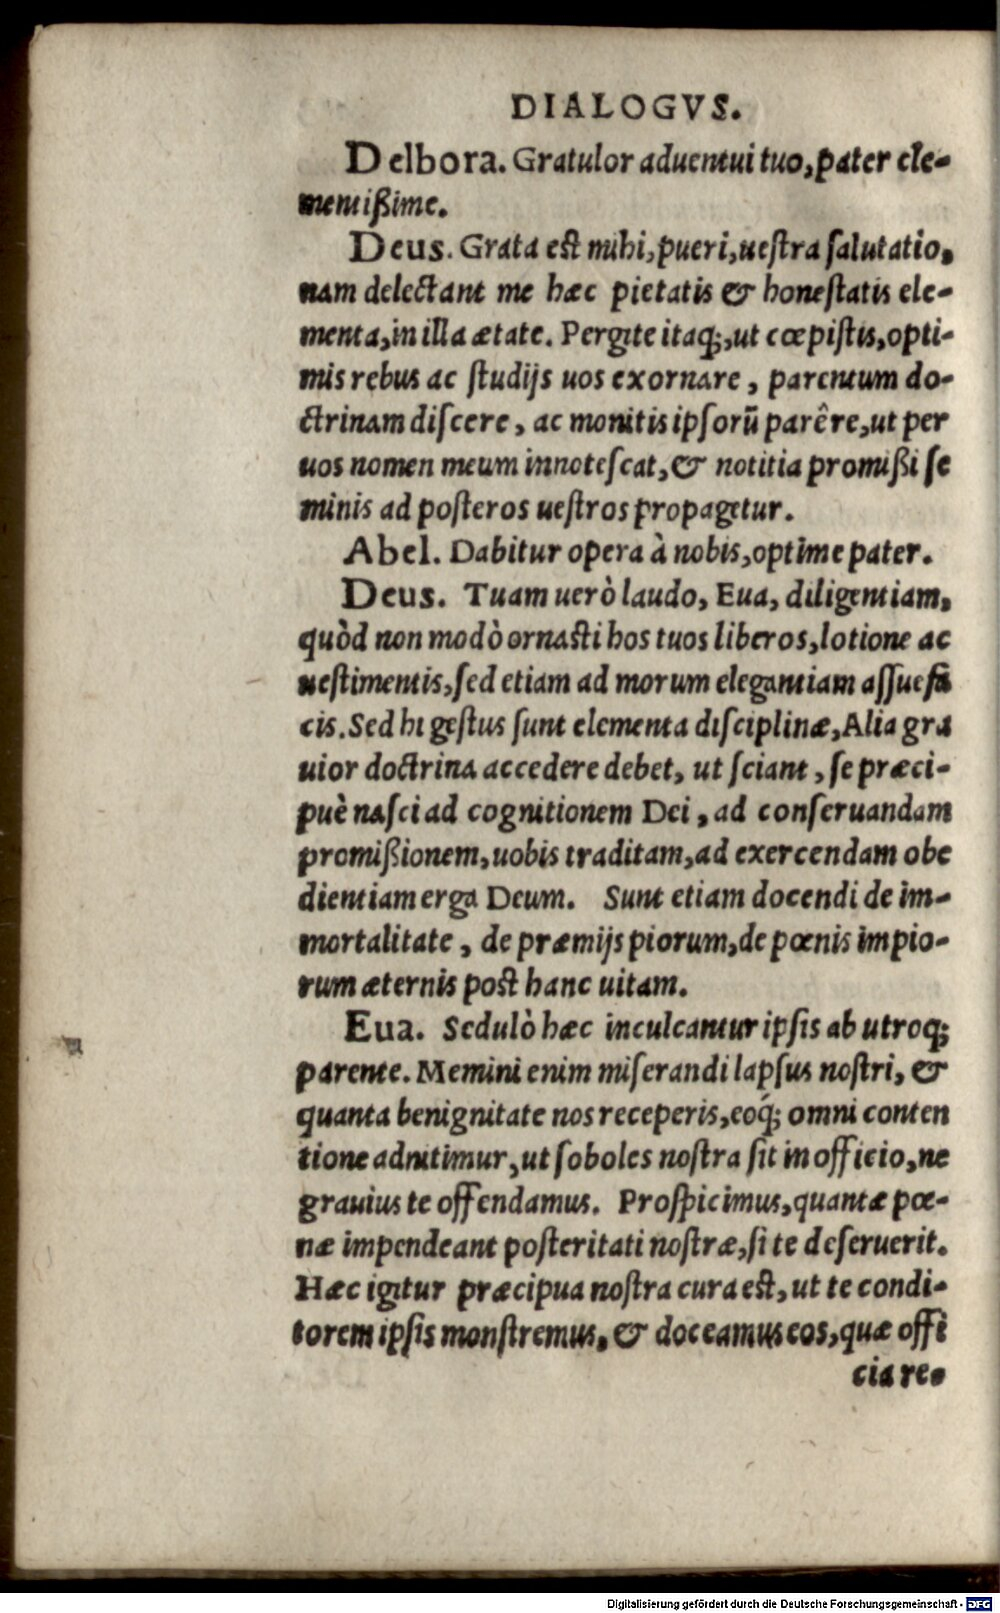 DIALOGVS.
Delbora. Gratulor aduentui tuo, pater cle-
mentißime.
Deus. Grata est mihi, pueri, uestra salutatio,
nam delectant me hæc pietatis & honestatis ele-
menta, in illa ætate. Pergite itaq;, ut cœpistis, opti-
mis rebus ac studijs uos exornare, parentum do-
ctrinam discere, ac monitis ipsorũ parêre, ut per
uos nomen meum innotescat, & notitia promißi se
minis ad posteros uestros propagetur.
Abel. Dabitur opera à nobis, optime pater.
Deus. Tuam uerò laudo, Eua, diligentiam,
quòd non modò ornasti hos tuos liberos, lotione ac
uestimentis, sed etiam ad morum elegantiam assuefa
cis. Sed hi gestus sunt elementa disciplinæ, Alia gra
uior doctrina accedere debet, ut sciant, se præci-
puè nasci ad cognitionem Dei, ad conseruandam
promißionem, uobis traditam, ad exercendam obe
dientiam erga Deum. Sunt etiam docendi de im-
mortalitate, de præmijs piorum, de pœnis impio-
rum æternis post hanc uitam.
Eua. Sedulò hæc inculcantur ipsis ab utroq;
parente. Memini enim miserandi lapsus nostri, &
quanta benignitate nos receperis, eoq́; omni conten
tione adnitimur, ut soboles nostra sit in officio, ne
grauius te offendamus. Prospicimus, quantæ pœ-
næ impendeant posteritati nostræ, si te deseruerit.
Hæc igitur præcipua nostra cura est, ut te condi-
torem ipsis monstremus, & doceamus eos, quæ offi
cia re-
Digitalisierung gefördert durch die Deutsche Forschungsgemeinschaft - DFG